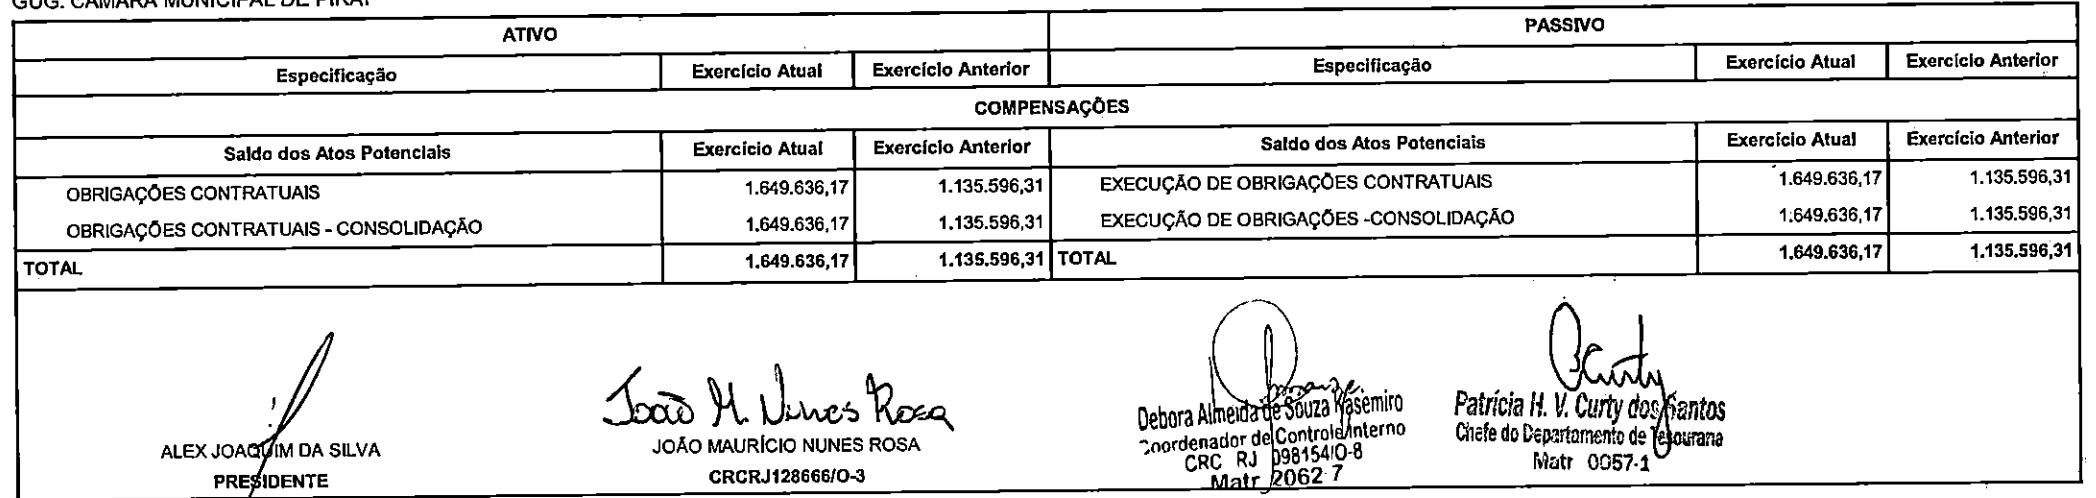 GUG: CÂMARA MUNICIPAL DE PIRAÍ
ATIVO PASSIVO
Especificação Exercício Atual Exercício Anterior Especificação Exercício Atual Exercício Anterior
COMPENSAÇÕES
Saldo dos Atos Potenciais Exercício Atual Exercício Anterior Saldo dos Atos Potenciais Exercício Atual Exercício Anterior
OBRIGAÇÕES CONTRATUAIS 1.649.636,17 1.135.596,31 EXECUÇÃO DE OBRIGAÇÕES CONTRATUAIS 1.649.636,17 1.135.596,31
OBRIGAÇÕES CONTRATUAIS - CONSOLIDAÇÃO 1.649.636,17 1.135.596,31 EXECUÇÃO DE OBRIGAÇÕES -CONSOLIDAÇÃO 1.649.636,17 1.135.596,31
TOTAL 1.649.636,17 1.135.596,31 TOTAL 1.649.636,17 1.135.596,31
João M. Nunes Rosa
Curty
ALEX JOAQUIM DA SILVA
PRESIDENTE
JOÃO MAURÍCIO NUNES ROSA
CRCRJ128666/O-3
Debora Almeida de Souza Nasemiro
Coordenador de Controle Interno
CRC RJ 098154/O-8
Matr 2062-7
Patrícia H. V. Curty dos Santos
Chefe do Departamento de Tesouraria
Matr 0057-1